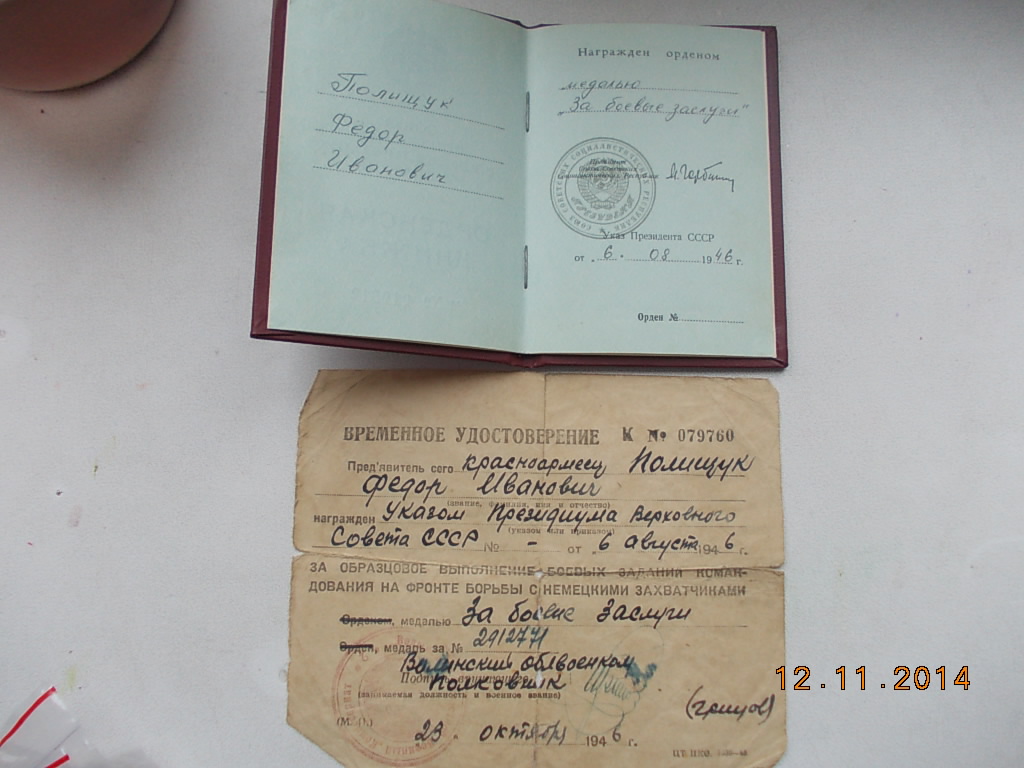 Полищук
Федор
Иванович
Награжден орденом
медалью
„За боевые заслуги"
Президент
Союза Советских
Социалистических Республик М. Горбачев
СОЮЗ СОВЕТСКИХ СОЦИАЛИСТИЧЕСКИХ РЕСПУБЛИК
ПРЕЗИДЕНТ
Указ Президента СССР
от „ 6 . 08 1946 г.
Орден №
ВРЕМЕННОЕ УДОСТОВЕРЕНИЕ К № 079760
Пред'явитель сего красноармеец Полищук
Федор Иванович
(звание, фамилия, имя и отчество)
награжден Указом Президиума Верховного
(указом или приказом)
Совета СССР № - от „ 6 августа 1946 г.
ЗА ОБРАЗЦОВОЕ ВЫПОЛНЕНИЕ БОЕВЫХ ЗАДАНИЙ КОМАН-
ДОВАНИЯ НА ФРОНТЕ БОРЬБЫ С НЕМЕЦКИМИ ЗАХВАТЧИКАМИ
Орденом, медалью За боевые Заслуги
Орден, медаль за № 2912771
Волинский облвоенком
Полковник
Подпись вручившего
(занимаемая должность и военное звание)
(М. П.) 23. октября 1946 г.
12.11.2014